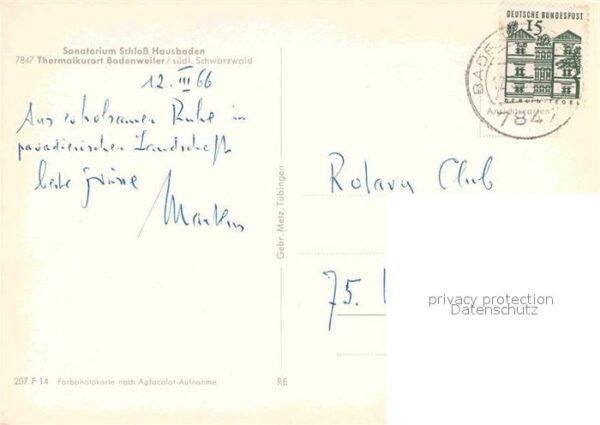 Sanatorium Schloß Hausbaden
7847 Thermalkurort Badenweiler / südl. Schwarzwald
12. III 66
Aus erholsamer Ruhe in
paradiesischer Landschaft
beste Grüsse
DEUTSCHE BUNDESPOST
15
BERLIN-TEGEL
BADE
7847
Gebr. Metz, Tübingen
Rotary Club
75.
privacy protection
Datenschutz
207 F 14 Farbphotokarte nach Agfacolor-Aufnahme RE